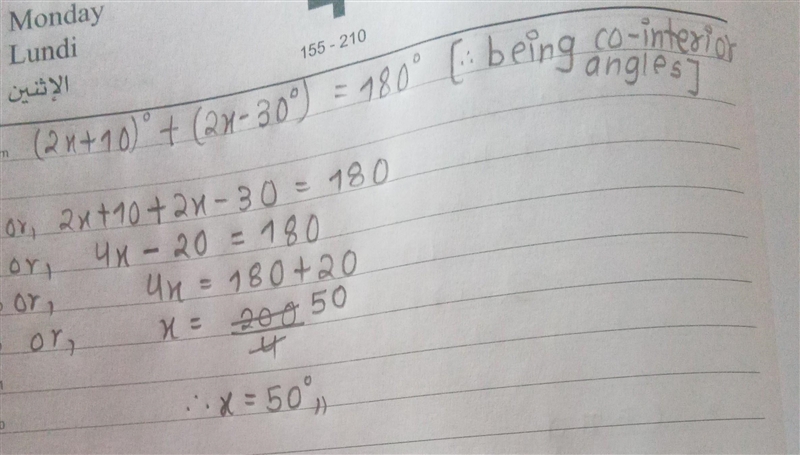 Monday
Lundi
الإثنين
155 - 210
(2x+10)° + (2x-30°) = 180° [∵ being co-interior
angles]
or, 2x+10+2x-30 = 180
or, 4x - 20 = 180
or, 4x = 180+20
or, x = 200/4 50
∴ x = 50°,,